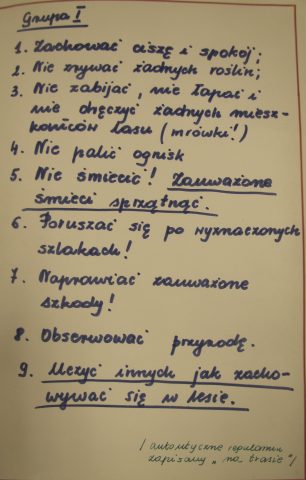 Grupa I
1. Zachować ciszę i spokój;
2. Nie zrywać żadnych roślin;
3. Nie zabijać, nie łapać i
nie dręczyć żadnych miesz-
kańców lasu (mrówki!)
4. Nie palić ognisk
5. Nie śmiecić! Zauważone
śmieci sprzątnąć.
6. Poruszać się po wyznaczonych
szlakach!
7. Naprawiać zauważone
szkody!
8. Obserwować przyrodę.
9. Uczyć innych jak zacho-
wywać się w lesie.
/ autentyczne regulamin
zapisany „na trasie" /